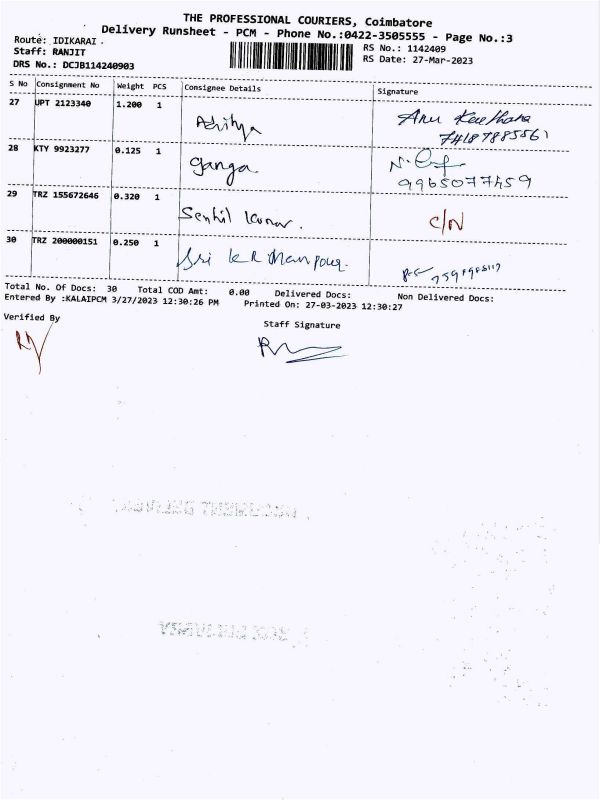 THE PROFESSIONAL COURIERS, Coimbatore
Delivery Runsheet - PCM - Phone No.:0422-3505555 - Page No.:3
Route: IDIKARAI .
RS No.: 1142409
Staff: RANJIT
RS Date: 27-Mar-2023
DRS No.: DCJB114240903
S No Consignment No Weight PCS Consignee Details Signature
27 UPT 2123340 1.200 1 Adhitya Anu
7418788556
28 KTY 9923277 0.125 1 Ganga
9965077459
29 TRZ 155672646 0.320 1 Senthil Kumar. C/N
30 TRZ 200000151 0.250 1 Sri
Total No. Of Docs: 30 Total COD Amt: 0.00 Delivered Docs: Non Delivered Docs:
Entered By :KALAIPCM 3/27/2023 12:30:26 PM Printed On: 27-03-2023 12:30:27
Verified By
Staff Signature